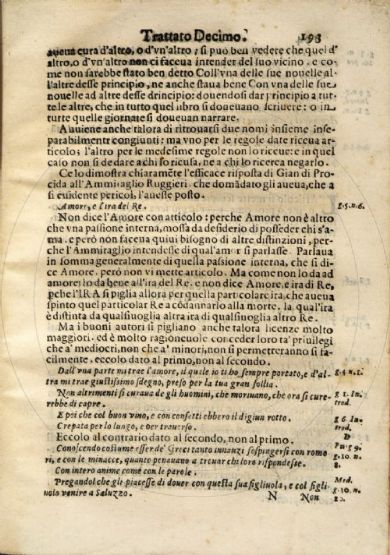 Trattato Decimo. 193
aueua cura d'altro, o d'vn'altro; si può ben vedere che quei d'
altro, o d'vn'altro non ci faceua intender del suo vicino. e co
me non sarebbe stato ben detto Coll'vna delle sue nouelle al-
l'altre desse principio, ne anche staua bene Con vna delle sue
nouelle ad altre desse principio: douendosi dar principio a tut-
te le altre, che in tutto quel libro si doueuano scriuere: o in
tutte quelle giornate si doueuan narrare.
Auuiene anche talora di ritrouarsi due nomi insieme inse-
parabilmente congiunti: ma vno per le regole date riceue ar-
ticolo; l'altro per le medesime regole non lo riceue: e in quel
caso non si dee dare a chi lo ricusa, ne a chi lo ricerca negarlo.
Ce lo dimostra chiaramēte l'efficace risposta di Gian di Pro-
cida all'Ammiraglio Ruggieri. che domādato gli aueua, che a
si euidente pericol, l'auesse posto.
Amore, e l'ira del Re. g.5.n.6.
Non dice l'Amore con articolo: perche Amore non è altro
che vna passione interna, mossa da desiderio di posseder chi s'a-
ma. e però non faceua quiui bisogno di altre distinzioni, per-
che l'Ammiraglio intendesse di qual'amor si parlasse. Parlaua
in somma generalmente di quella passione interna, che si di-
ce Amore. però non vi mette articolo. Ma come non lo dà ad
amore: lo dà bene all'ira del Re. e non dice Amore, e ira di Re,
pche l'IRA si piglia allora per quella particolare ira, che aueua
spinto quel particolar Re a cōdannarlo alla morte. la qual'ira
è distinta da qualsiuoglia altra ira di qualsiuoglia altro Re.
Ma i buoni autori si pigliano anche talora licenze molto
maggiori. ed è molto ragioneuole conceder loro ta' priuilegi
che a' mediocri, non che a' minori, non si permetteranno sì fa-
cilmente. eccolo dato al primo, non al secondo.
Dall'vna parte mi trae l'amore, il quale io ti ho sempre portato, e d'al- g.4.n.1.
tra mi trae giustissimo sdegno, preso per la tua gran follia.
Non altrimenti si curaua degli huomini, che moriuano, che ora si cure- g. 1. In-
rebbe di capre. trod.
E poi che col buon vino, e con confetti ebbero il digiun rotto. g 6. In-
Crepata per lo lungo, e per trauerso. trod.
Eccolo al contrario dato al secondo, non al primo. D
Conoscendo costume esser de' Greci tanto innanzi sospingersi con romo
ri, e con le minacce, quanto penauano a trouar chi loro rispondesse. g.10.n.
Con intero anime come con le parole. 8.
Pregandol che gli piacesse di douer con questa sua figliuola, e col figli Med.
uolo venire a Saluzzo. g.10.n.
N Non